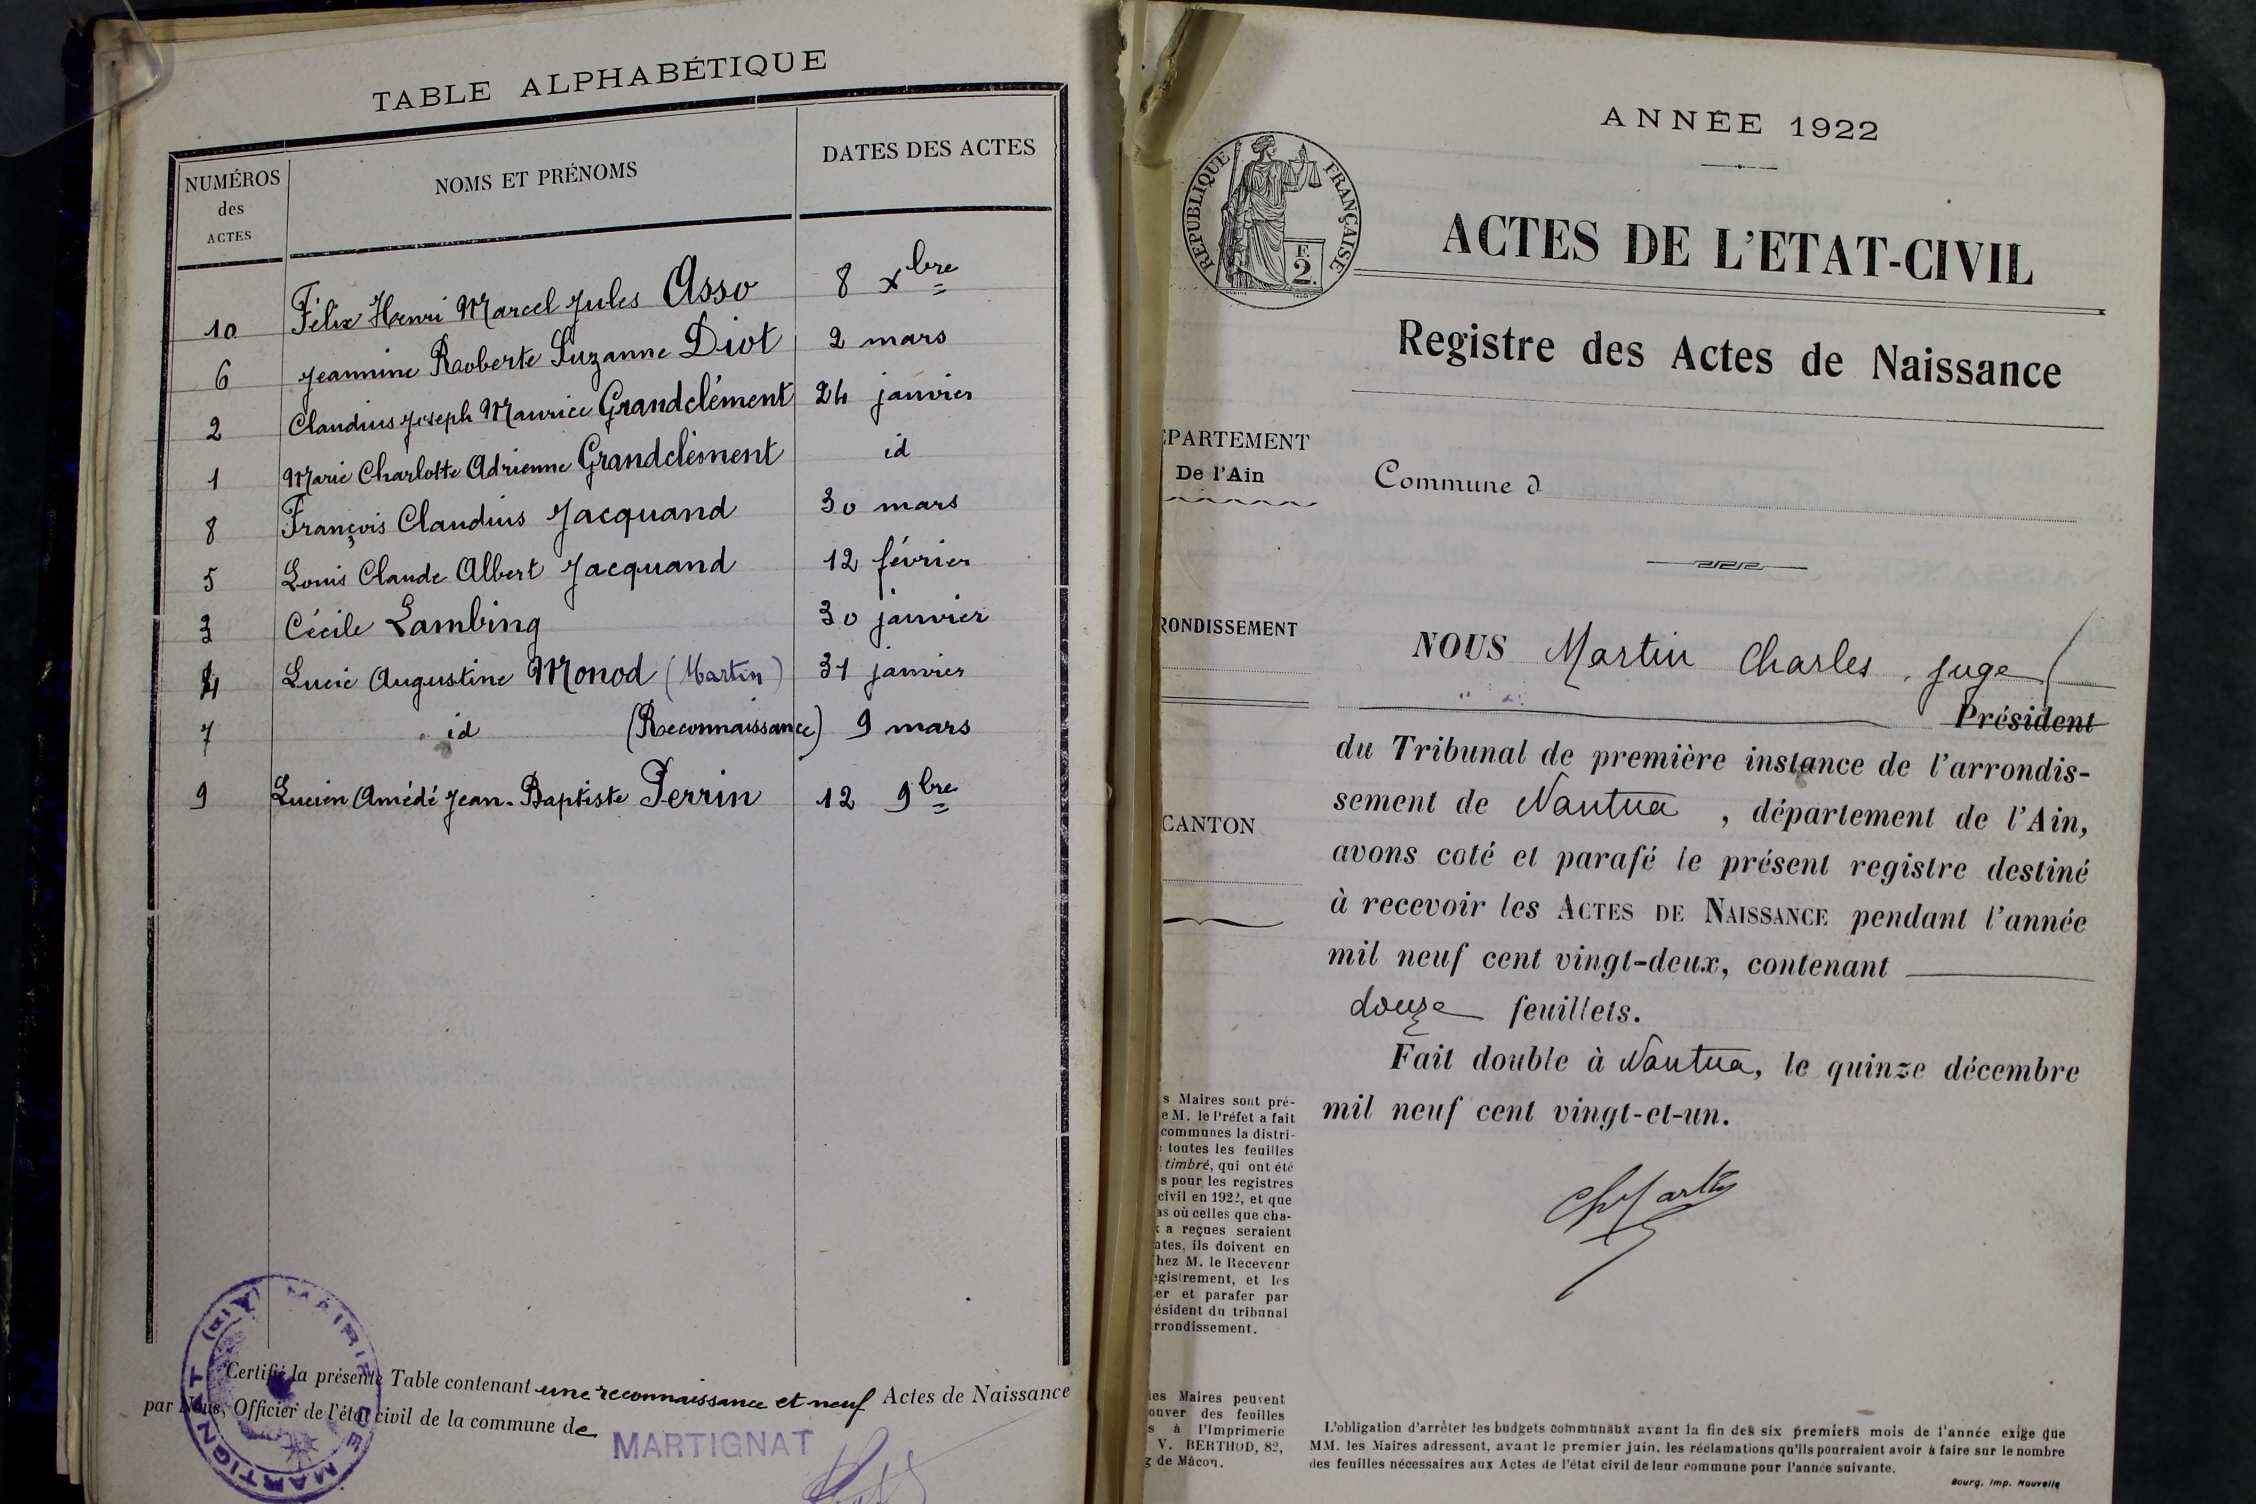 TABLE ALPHABÉTIQUE
NUMÉROS
des
ACTES
NOMS ET PRÉNOMS
DATES DES ACTES
10 Félix Henri Marcel Jules Asso 8 xbre
6 Jeannine Roberte Suzanne Diot 2 mars
2 Claudius Joseph Maurice Grandclément 24 janvier
1 Marie Charlotte Adrienne Grandclément id
8 François Claudius Jacquand 30 mars
5 Louis Claude Albert Jacquand 12 février
3 Cécile Lambing 30 janvier
4 Lucie Augustine Monod (Martin) 31 janvier
7 id (Reconnaissance) 9 mars
9 Lucien Amédé Jean-Baptiste Perrin 12 9bre
Certifié la présente Table contenant une reconnaissance et neuf Actes de Naissance
par Nous, Officier de l'état civil de la commune de
MARTIGNAT
MAIRIE DE MARTIGNAT
ANNÉE 1922
RÉPUBLIQUE FRANÇAISE
F.
2.
ACTES DE L'ETAT-CIVIL
Registre des Actes de Naissance
ÉPARTEMENT
De l'Ain
Commune d
RONDISSEMENT
CANTON
NOUS Martin Charles, juge
Président
du Tribunal de première instance de l'arrondis-
sement de Nantua, département de l'Ain,
avons coté et parafé le présent registre destiné
à recevoir les ACTES DE NAISSANCE pendant l'année
mil neuf cent vingt-deux, contenant
douze feuillets.
Fait double à Nantua, le quinze décembre
mil neuf cent vingt-et-un.
Ch Martin
s Maires sont pré-
e M. le Préfet a fait
communes la distri-
toutes les feuilles
timbré, qui ont été
s pour les registres
civil en 1922, et que
as où celles que cha-
a reçues seraient
ntes, ils doivent en
hez M. le Receveur
egistrement, et les
er et parafer par
ésident du tribunal
rrondissement.
les Maires peuvent
ouver des feuilles
s à l'Imprimerie
V. BERTHOD, 82,
g de Mâcon.
L'obligation d'arrêter les budgets communaux avant la fin des six premiers mois de l'année exige que
MM. les Maires adressent, avant le premier juin, les réclamations qu'ils pourraient avoir à faire sur le nombre
des feuilles nécessaires aux Actes de l'état civil de leur commune pour l'année suivante.
Bourg, Imp. Nouvelle